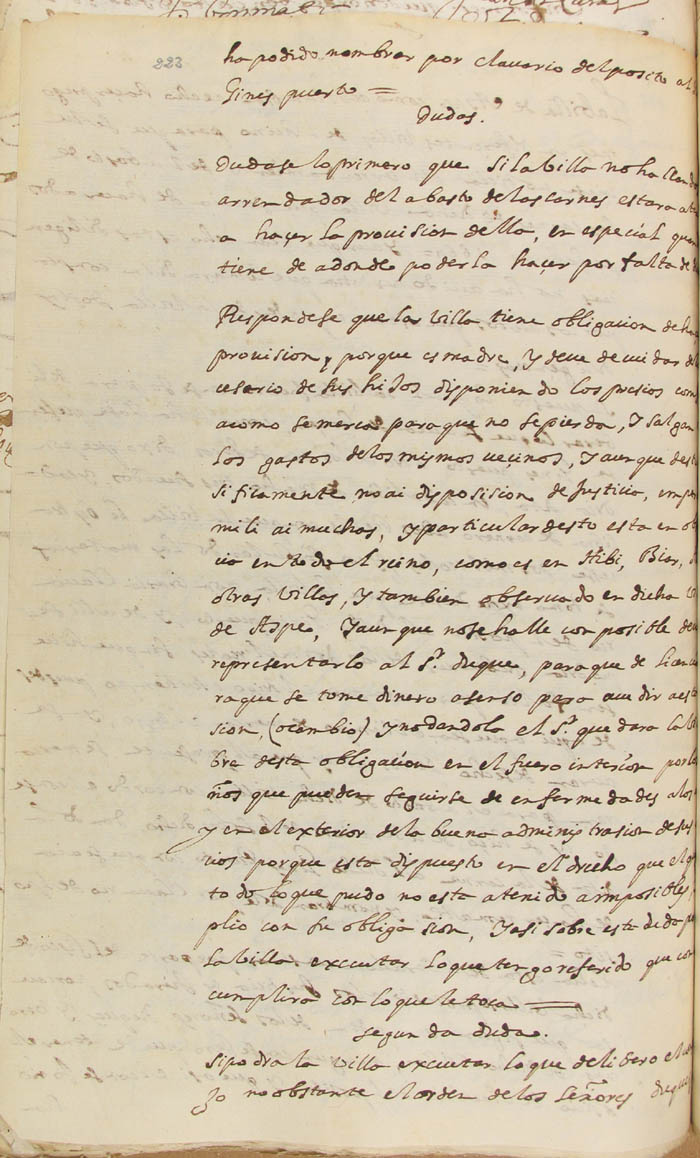 223
ha podido nombrar por clavario del posito al
Gines puerto =
Dudas.
Dudase lo primero que si la Villa no halla
arrendador del abasto de las carnes estara
a haçer la provision della, en especial
tiene de adonde poderla haçer por falta de
Respondese que la Villa tiene obligacion de
provision, porque es madre, y deve de cuidar
cesario de sus hijos disponiendo los presios
acomo se merca para que no se pierda, y salgan
los gastos de los mismos veçinos, y aunque
sificamente no ai disposision de Justicia,
mili ai muchas, y particular desto esta en
cia en todo el reino, como es en Hibi, Biar,
otras Villas, y tambien observado en dicha
de Aspe, y aunque no se halle con posible
representarlo al Sr. duque, para que de
raque se tome dinero asenso para acudir
sion, (o cambio) y no dandola el Sr. quedara
bre desta obligacion en el fuero interion por
ños que pueden seguirse de enfermedades
y en el exterior de la buena administrasion
cios porque esta dispuesto en el drecho que el
todo lo que pudo no esta atenido a imposibles,
plio con su obligasion, y asi sobre esta duda
la Villa executar lo que tengo referido que
cumplira con lo que le toca =
segunda duda.
Si podra la Villa executar lo que delibero el
jo no obstante el orden de los Señores